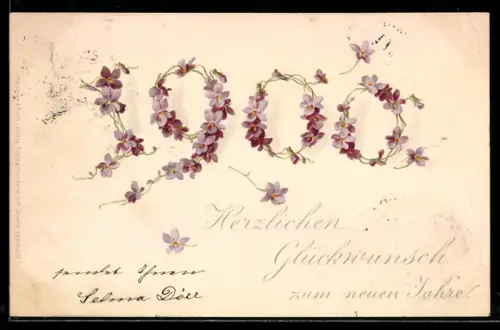 1900
Herzlichen
Glückwunsch
zum neuen Jahre!
sendet Ihnen
Selma Dörr